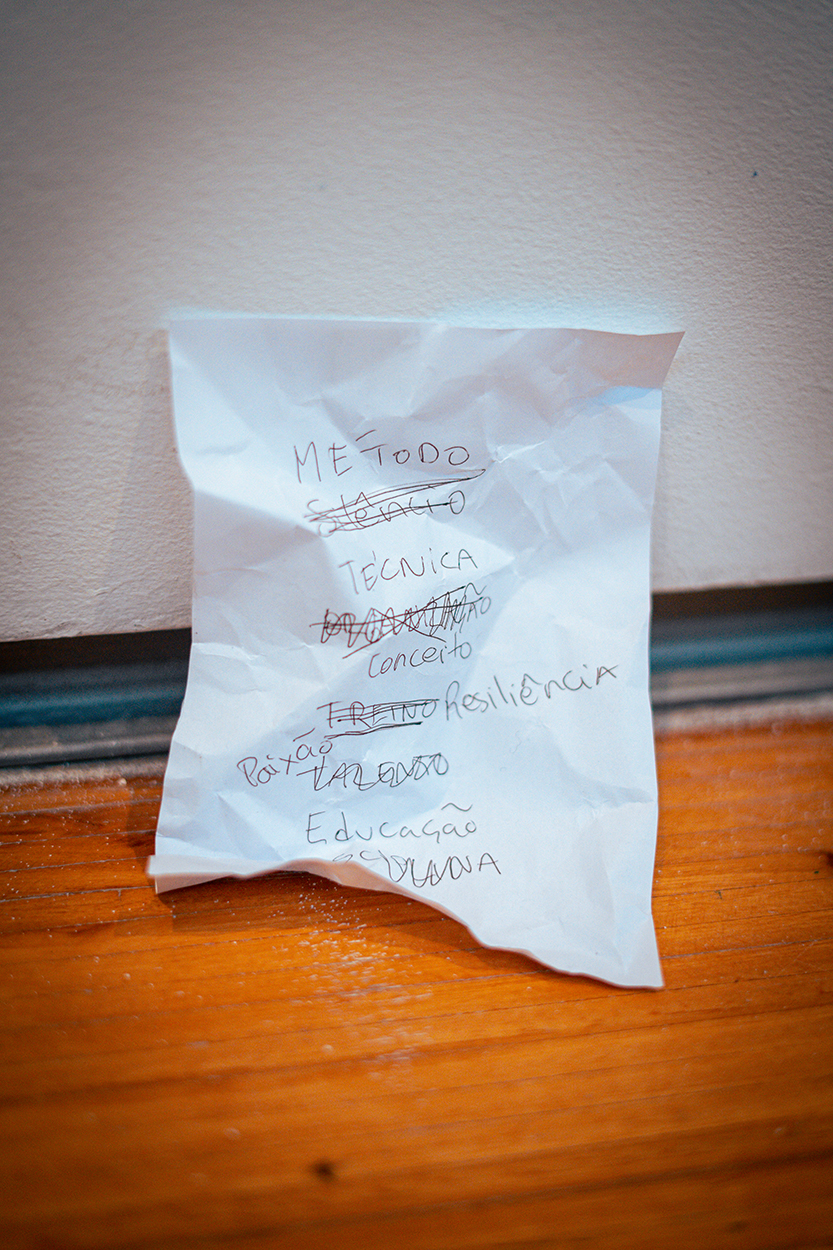 METODO
Silêncio
TÉCNICA
Conceito
TREINO Resiliência
Paixão
TALENTO
Educação